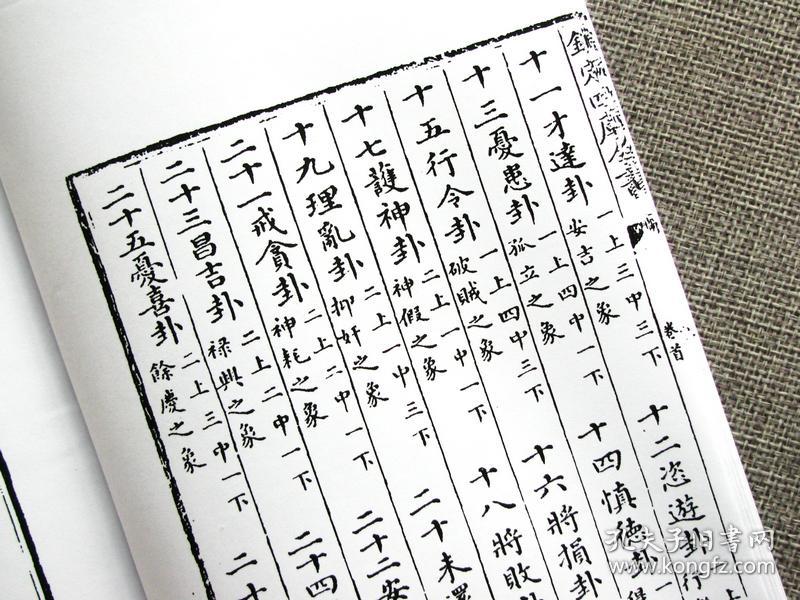 欽定四庫全書
卷首
十一才達卦 一上三中三下 安吉之象
十二恣遊卦 一上 行
十三憂患卦 一上四中一下 孤立之象
十四慎德卦 一
十五行令卦 一上四中三下 破賊之象
十六將損卦
十七護神卦 二上一中一下 神假之象
十八將敗卦
十九理亂卦 二上一中三下 抑奸之象
二十未還
二十一戒貪卦 二上二中一下 神耗之象
二十二安
二十三昌吉卦 二上二中三下 祿興之象
二十四
二十五憂喜卦 二上三中一下 餘慶之象
二十
孔夫子旧书网
www.kongfz.com